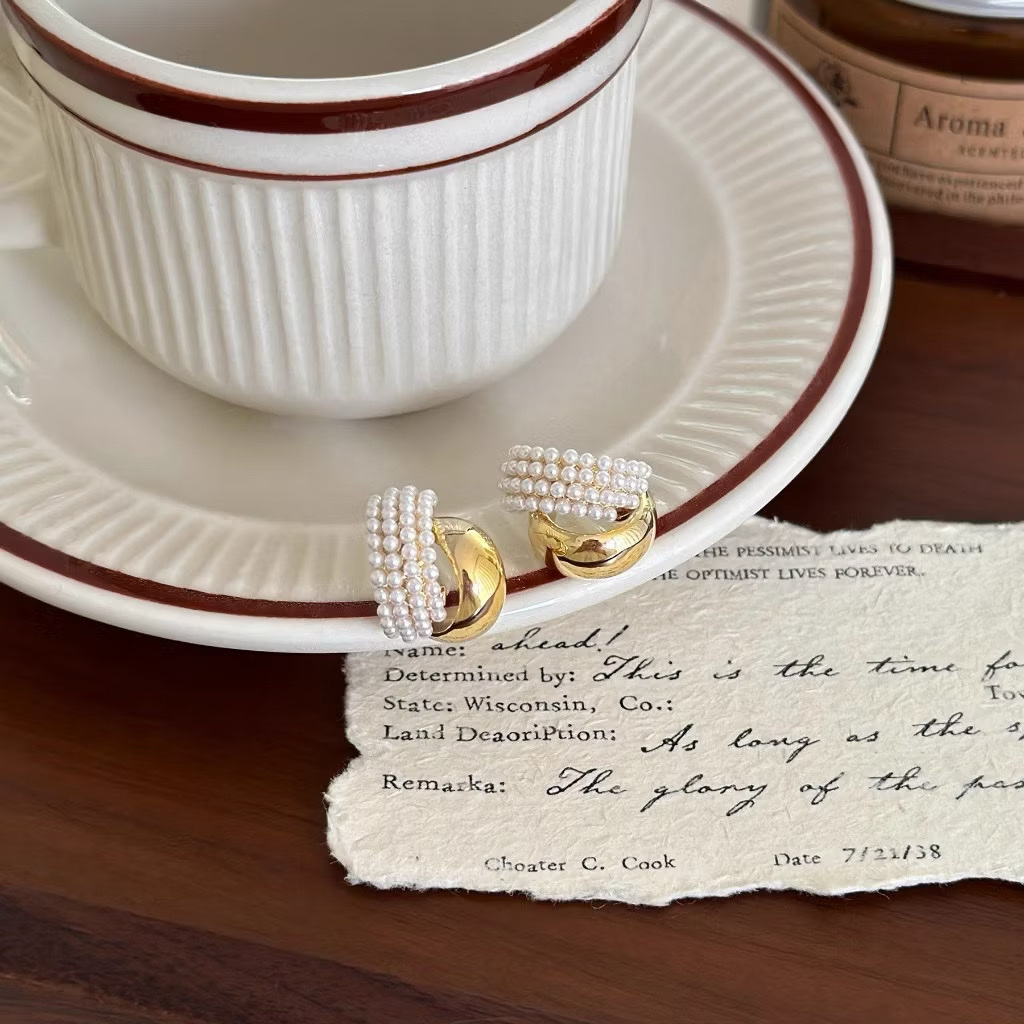 Aroma
SCENTED
not have experienced
THE PESSIMIST LIVES TO DEATH
THE OPTIMIST LIVES FOREVER.
Name: ahead!
Determined by: This is the time fo
Tow
State: Wisconsin, Co.:
Land DeaoriPtion: As long as the sp
Remarka: The glory of the pas
Choater C. Cook Date 7/21/38